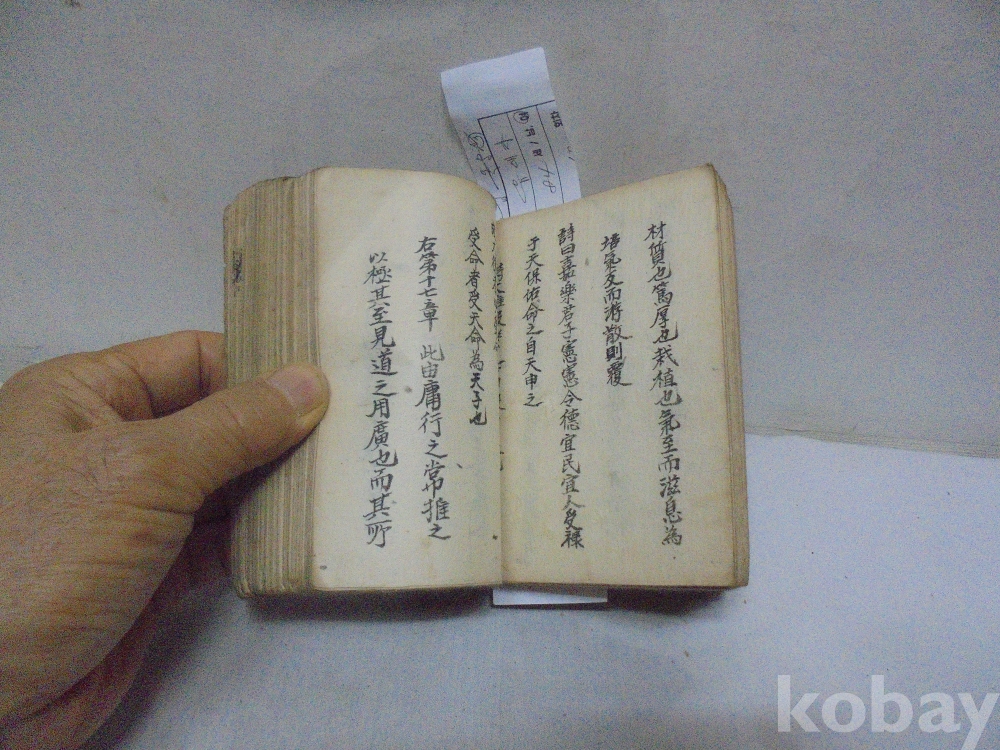 材質也篤厚也栽植也氣至而滋息為
培氣反而游散則覆
詩曰嘉樂君子憲憲令德宜民宜人受祿
于天保佑命之自天申之
受命者受天命為天子也
右第十七章 此由庸行之常推之
以極其至見道之用廣也而其所
kobay